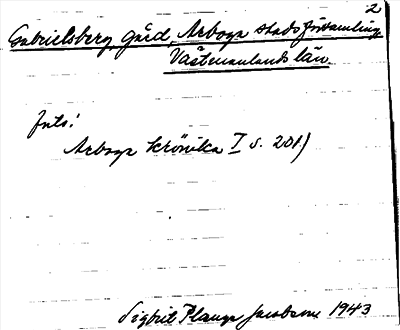 2
Gabrielsberg, Gård, Arboga stadsförsamling
Västmanlands län.
Arboga krönika I s. 201)
Sigbrit Plange Jacobson 1943